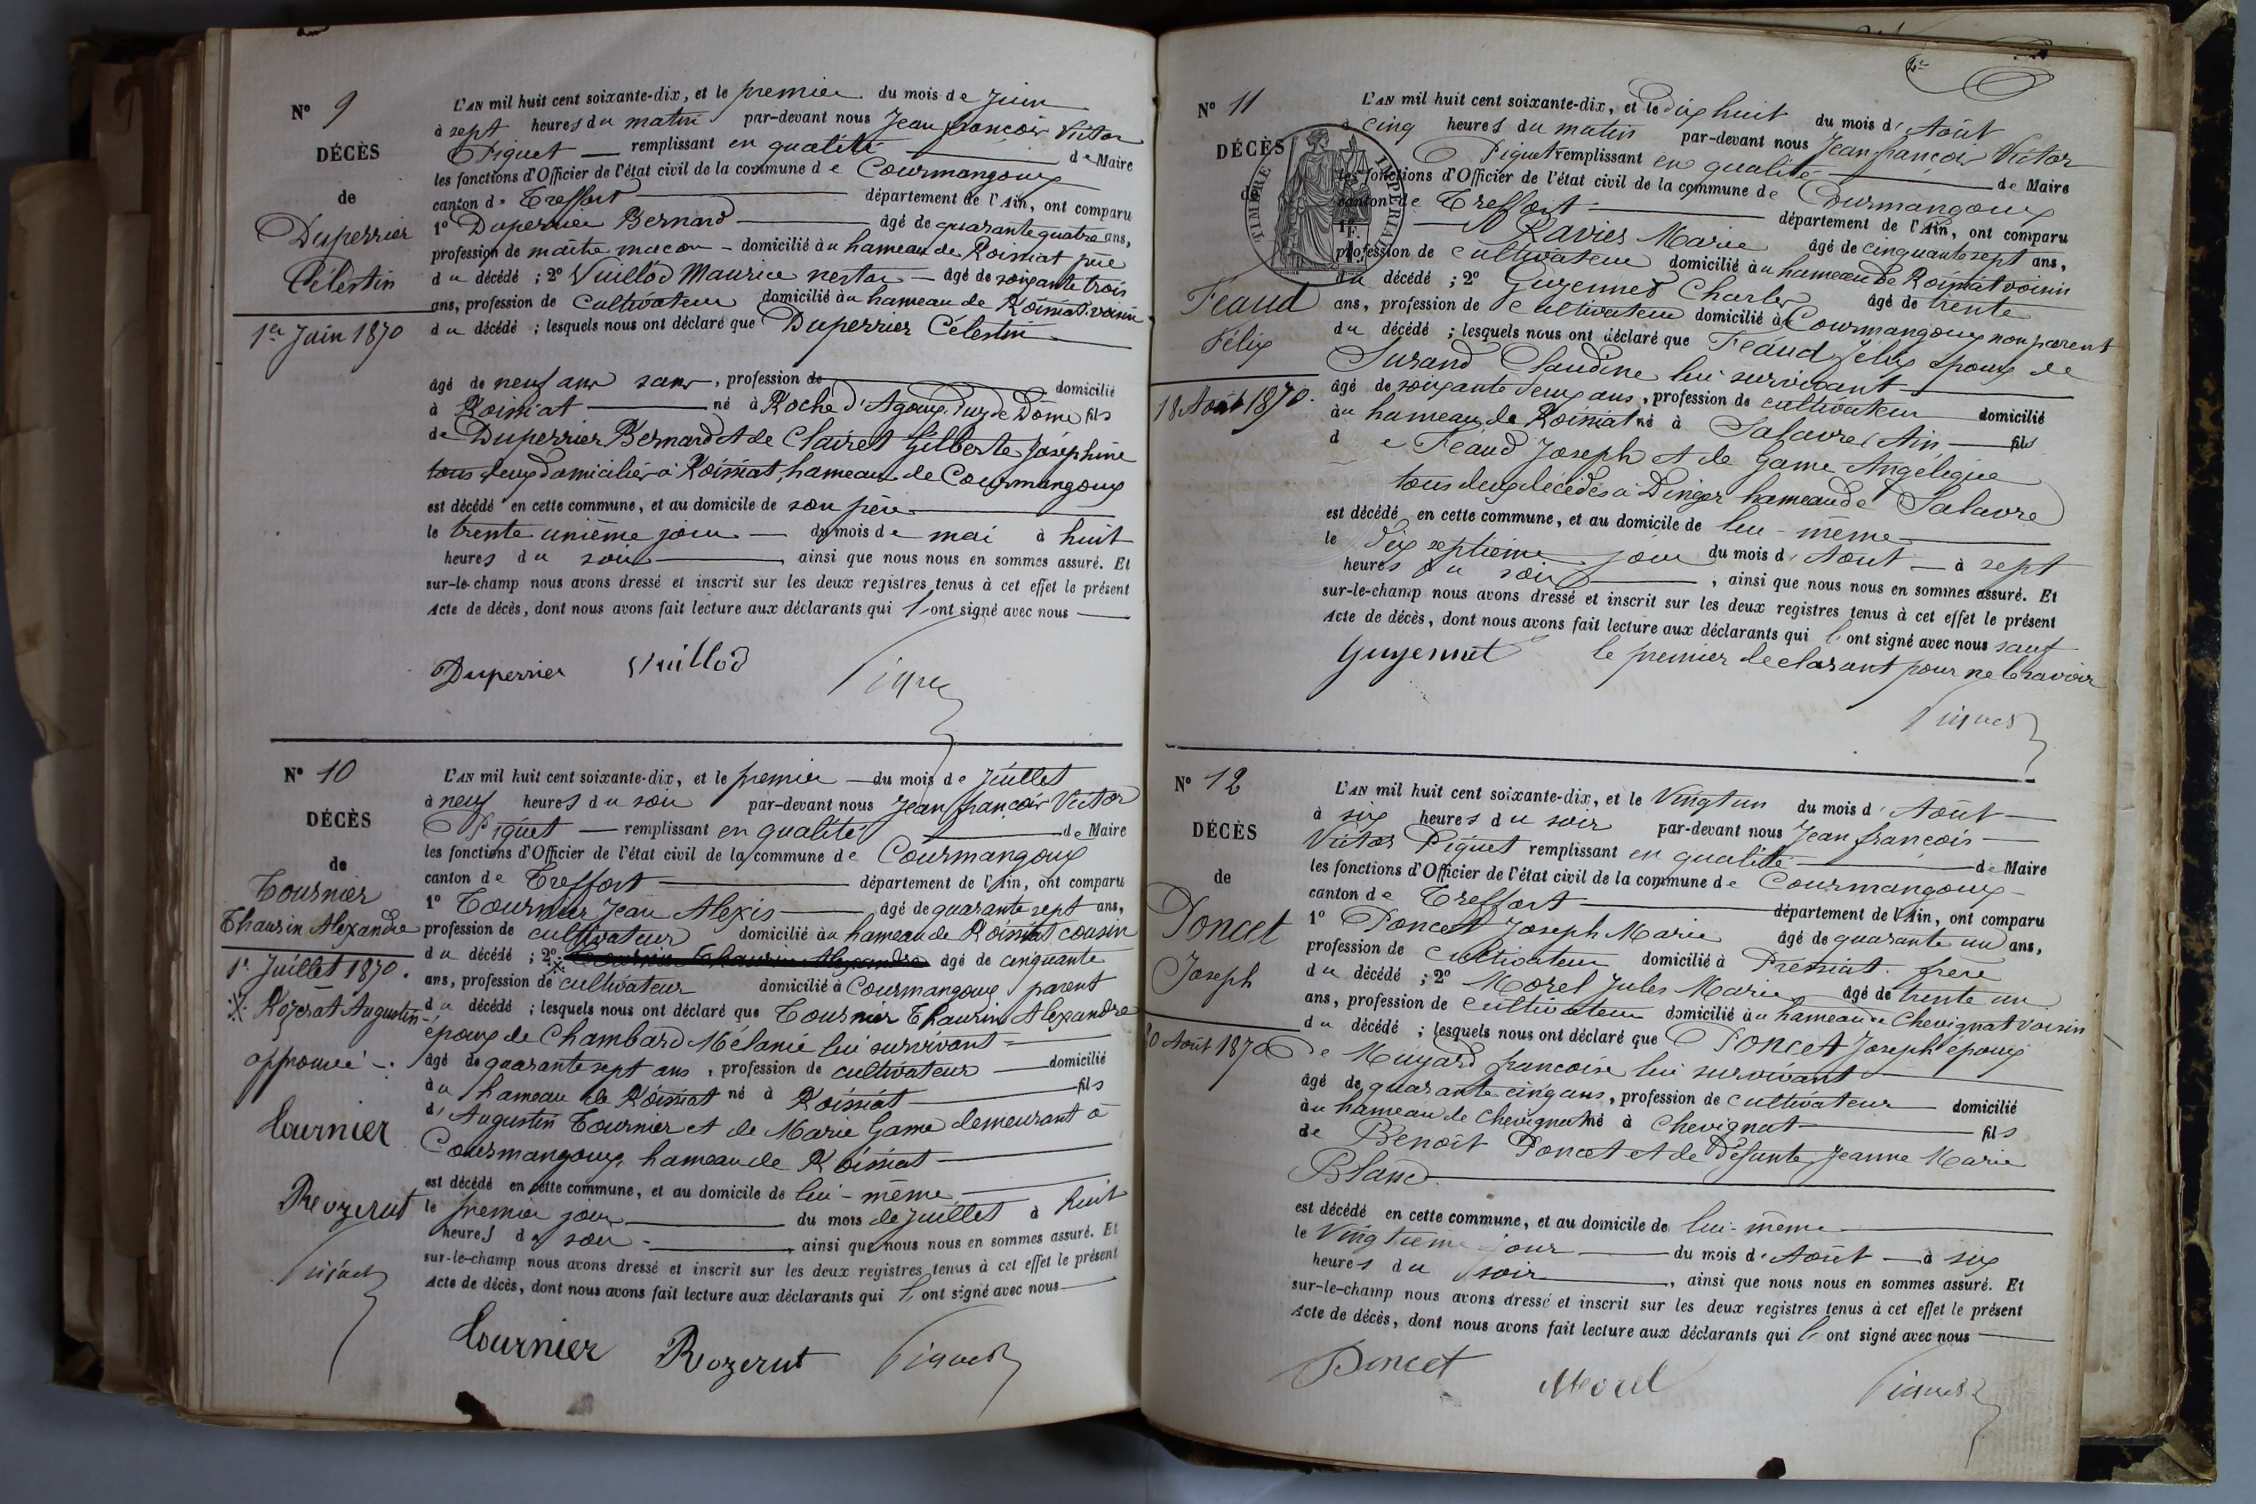 N° 9
DÉCÈS
de
Duperrier
Célestin
1er Juin 1870
L'AN mil huit cent soixante-dix, et le premier du mois de Juin
à sept heures du matin par-devant nous Jean françois Victor
Piguet remplissant en qualité de Maire
les fonctions d'Officier de l'état civil de la commune de Courmangoux
canton de Treffort département de l'Ain, ont comparu
1° Duperrier Bernard âgé de quarante quatre ans,
profession de maître maçon domicilié au hameau de Roissiat père
du décédé ; 2° Vuillod Maurice nestor âgé de soixante trois
ans, profession de cultivateur domicilié au hameau de Roissiat voisin
du décédé ; lesquels nous ont déclaré que Duperrier Célestin
âgé de neuf ans sans, profession de domicilié
à Roissiat né à Roche d'Agoux Puy de Dome fils
de Duperrier Bernard et de Clairet Gilberte Joséphine
tous deux domiciliés à Roissiat, hameau de Courmangoux
est décédé en cette commune, et au domicile de son père
le trente unième jour du mois de mai à huit
heures du soir ainsi que nous nous en sommes assuré. Et
sur-le-champ nous avons dressé et inscrit sur les deux registres tenus à cet effet le présent
Acte de décès, dont nous avons fait lecture aux déclarants qui l'ont signé avec nous
Duperrier Vuillod Piguet
N° 10
DÉCÈS
de
Tournier
Thaurin Alexandre
1er Juillet 1870.
Rozerat Augustin
approuvé
Tournier
Rozerat
Piguet
L'AN mil huit cent soixante-dix, et le premier du mois de Juillet
à neuf heures du soir par-devant nous Jean françois Victor
Piguet remplissant en qualité de Maire
les fonctions d'Officier de l'état civil de la commune de Courmangoux
canton de Treffort département de l'Ain, ont comparu
1° Tournier Jean Alexis âgé de quarante sept ans,
profession de cultivateur domicilié au hameau de Roissiat cousin
du décédé ; 2° Tournier Thaurin Alexandre âgé de cinquante
ans, profession de cultivateur domicilié à Courmangoux parent
du décédé ; lesquels nous ont déclaré que Tournier Thaurin Alexandre
époux de Chambard Mélanie lui survivant
âgé de quarante sept ans, profession de cultivateur domicilié
au hameau de Roissiat né à Roissiat fils
d'Augustin Tournier et de Marie Game demeurant à
Courmangoux, hameau de Roissiat
est décédé en cette commune, et au domicile de lui-même
le premier jour du mois de Juillet à huit
heures du soir ainsi que nous nous en sommes assuré. Et
sur-le-champ nous avons dressé et inscrit sur les deux registres tenus à cet effet le présent
Acte de décès, dont nous avons fait lecture aux déclarants qui l'ont signé avec nous
Tournier Rozerat Piguet
N° 11
DÉCÈS
de
TIMBRE IMPÉRIAL
Féaud
Félix
18 Août 1870.
L'AN mil huit cent soixante-dix, et le dix huit du mois d'Août
à cinq heures du matin par-devant nous Jean françois Victor
Piguet remplissant en qualité de Maire
les fonctions d'Officier de l'état civil de la commune de Courmangoux
canton de Treffort département de l'Ain, ont comparu
1° Ravier Marie âgé de cinquante sept ans,
profession de cultivateur domicilié au hameau de Roissiat voisin
du décédé ; 2° Guyennet Charles âgé de trente
ans, profession de cultivateur domicilié à Courmangoux non parent
du décédé ; lesquels nous ont déclaré que Féaud Félix époux de
Surand Claudine lui survivant
âgé de soixante deux ans, profession de cultivateur domicilié
au hameau de Roissiat né à Salavre Ain fils
de Féaud Joseph et de Game Angélique
tous deux décédés à Dingier hameau de Salavre
est décédé en cette commune, et au domicile de lui-même
le dix septième jour du mois d'Août à sept
heures du soir, ainsi que nous nous en sommes assuré. Et
sur-le-champ nous avons dressé et inscrit sur les deux registres tenus à cet effet le présent
Acte de décès, dont nous avons fait lecture aux déclarants qui l'ont signé avec nous sauf
Guyennet le premier declarant pour ne le savoir
Piguet
N° 12
DÉCÈS
de
Poncet
Joseph
20 Août 1870
L'AN mil huit cent soixante-dix, et le Vingt un du mois d'Août
à six heures du soir par-devant nous Jean françois
Victor Piguet remplissant en qualité de Maire
les fonctions d'Officier de l'état civil de la commune de Courmangoux
canton de Treffort département de l'Ain, ont comparu
1° Poncet Joseph Marie âgé de quarante un ans,
profession de cultivateur domicilié à Pressiat frère
du décédé ; 2° Morel Jules Marie âgé de trente un
ans, profession de cultivateur domicilié au hameau de Chevignat voisin
du décédé ; lesquels nous ont déclaré que Poncet Joseph époux
de Muyard françoise lui survivant
âgé de quarante cinq ans, profession de cultivateur domicilié
au hameau de Chevignat né à Chevignat fils
de Benoît Poncet et de Défunte Jeanne Marie
Blanc
est décédé en cette commune, et au domicile de lui-même
le Vingtième jour du mois d'Août à six
heures du soir, ainsi que nous nous en sommes assuré. Et
sur-le-champ nous avons dressé et inscrit sur les deux registres tenus à cet effet le présent
Acte de décès, dont nous avons fait lecture aux déclarants qui l'ont signé avec nous
Poncet Morel Piguet